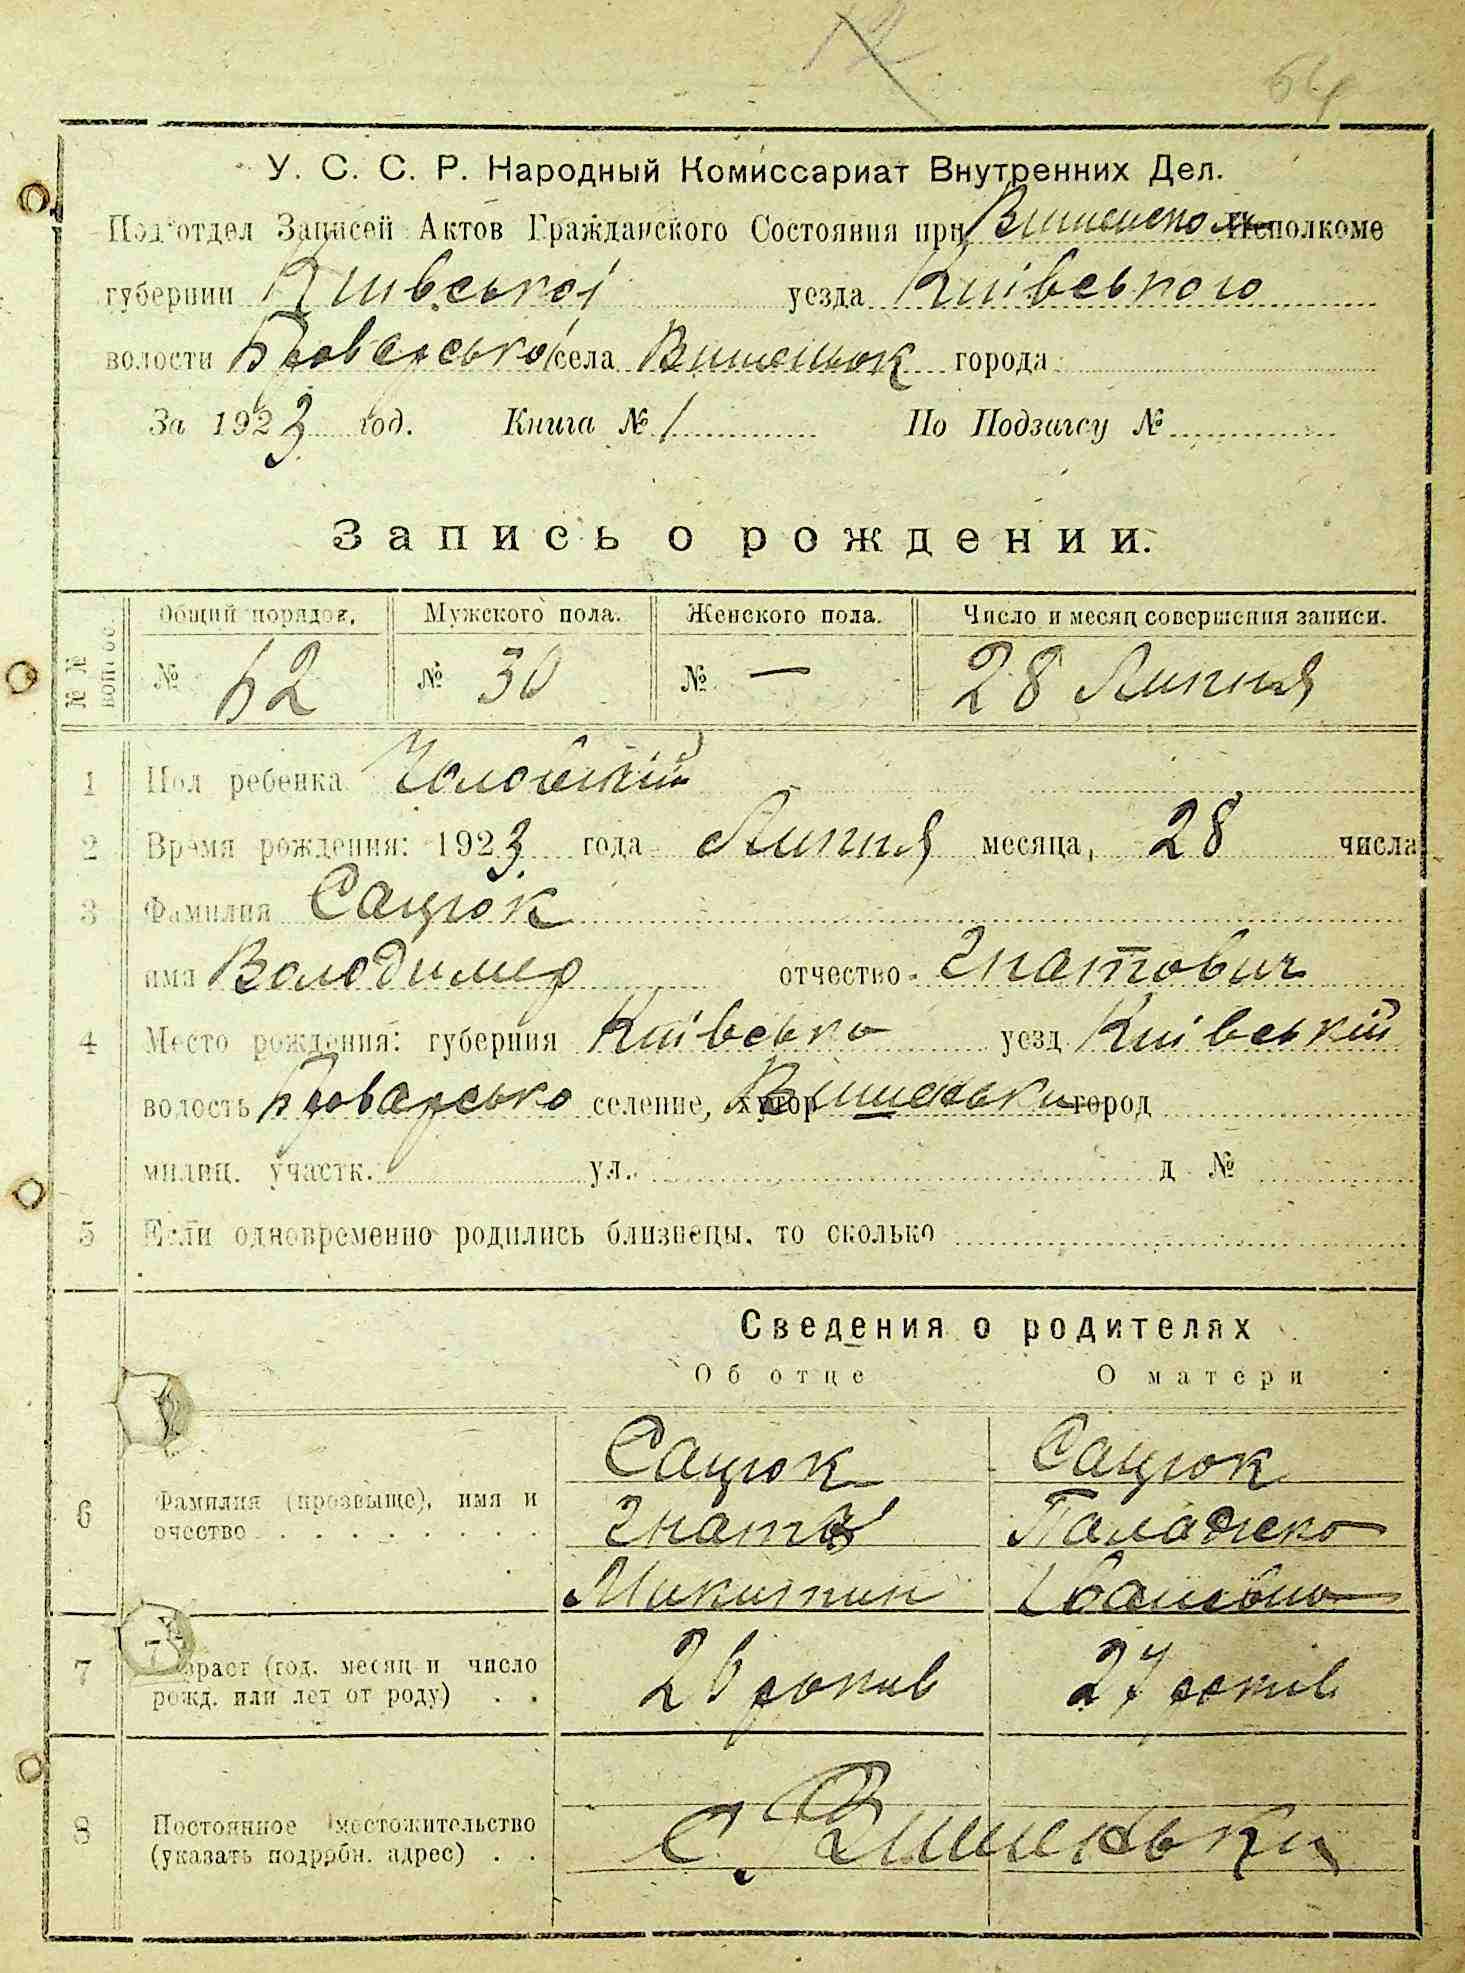 64
У. С. С. Р. Народный Комиссариат Внутренних Дел.
Под'отдел Записей Актов Гражданского Состояния при Вишенском Исполкоме
губернии Київської уезда Київського
волости Броварської села Вишеньок города
За 1923 год. Книга № 1 По Подзагсу №
Запись о рождении.
№№ вопрос. Общий порядок. Мужского пола. Женского пола. Число и месяц совершения записи.
№ 62 № 30 № — 28 Липня
1 Пол ребенка Чоловічий
2 Время рождения: 1923 года Липня месяца, 28 числа
3 Фамилия Сацюк
имя Володимер отчество Гнатович
4 Место рождения: губерния Київська уезд Київський
волость Броварська селение, хутор Вишеньки город
милиц. участк. ул. д №
5 Если одновременно родились близнецы, то сколько
Сведения о родителях
Об отце О матери
Сацюк Сацюк
6 Фамилия (прозвыще), имя и Гнат Паладжка
очество
Микитин Івановна
7 Возраст (год, месяц и число 26 років 27 років
рожд. или лет от роду)
8 Постоянное местожительство с. Вишеньки
(указать подррбн. адрес)